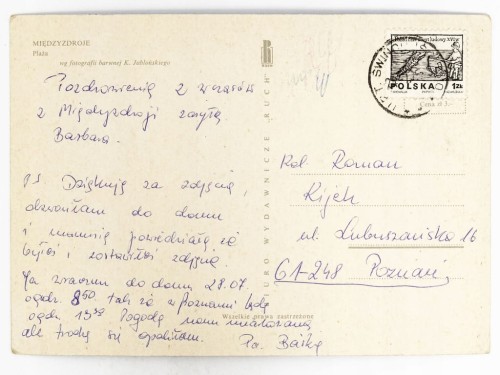 MIĘDZYZDROJE
Plaża
wg fotografii barwnej K. Jabłońskiego
Pozdrowienia z wczasów
z Międzyzdroji zasyła
Barbara.
PS Dziękuję za zdjęcie,
dzwoniłam do domu
i mamusia powiedziała że
byłeś i zostawiłeś zdjęcia.
Ja wracam do domu 28.07.
ogdz. 8 50 tak że w Poznaniu będę
ogdz 13 39 Pogodę mamy umiarkowaną
ale trochę się opaliłam.
Pa. Baśka
BIURO WYDAWNICZE "RUCH"
Wszelkie prawa zastrzeżone
POLSKA
1 Zł
Cena zł 1,-
Kol. Roman
Kijek
ul. Lubuszańska 16
61-248 Poznań